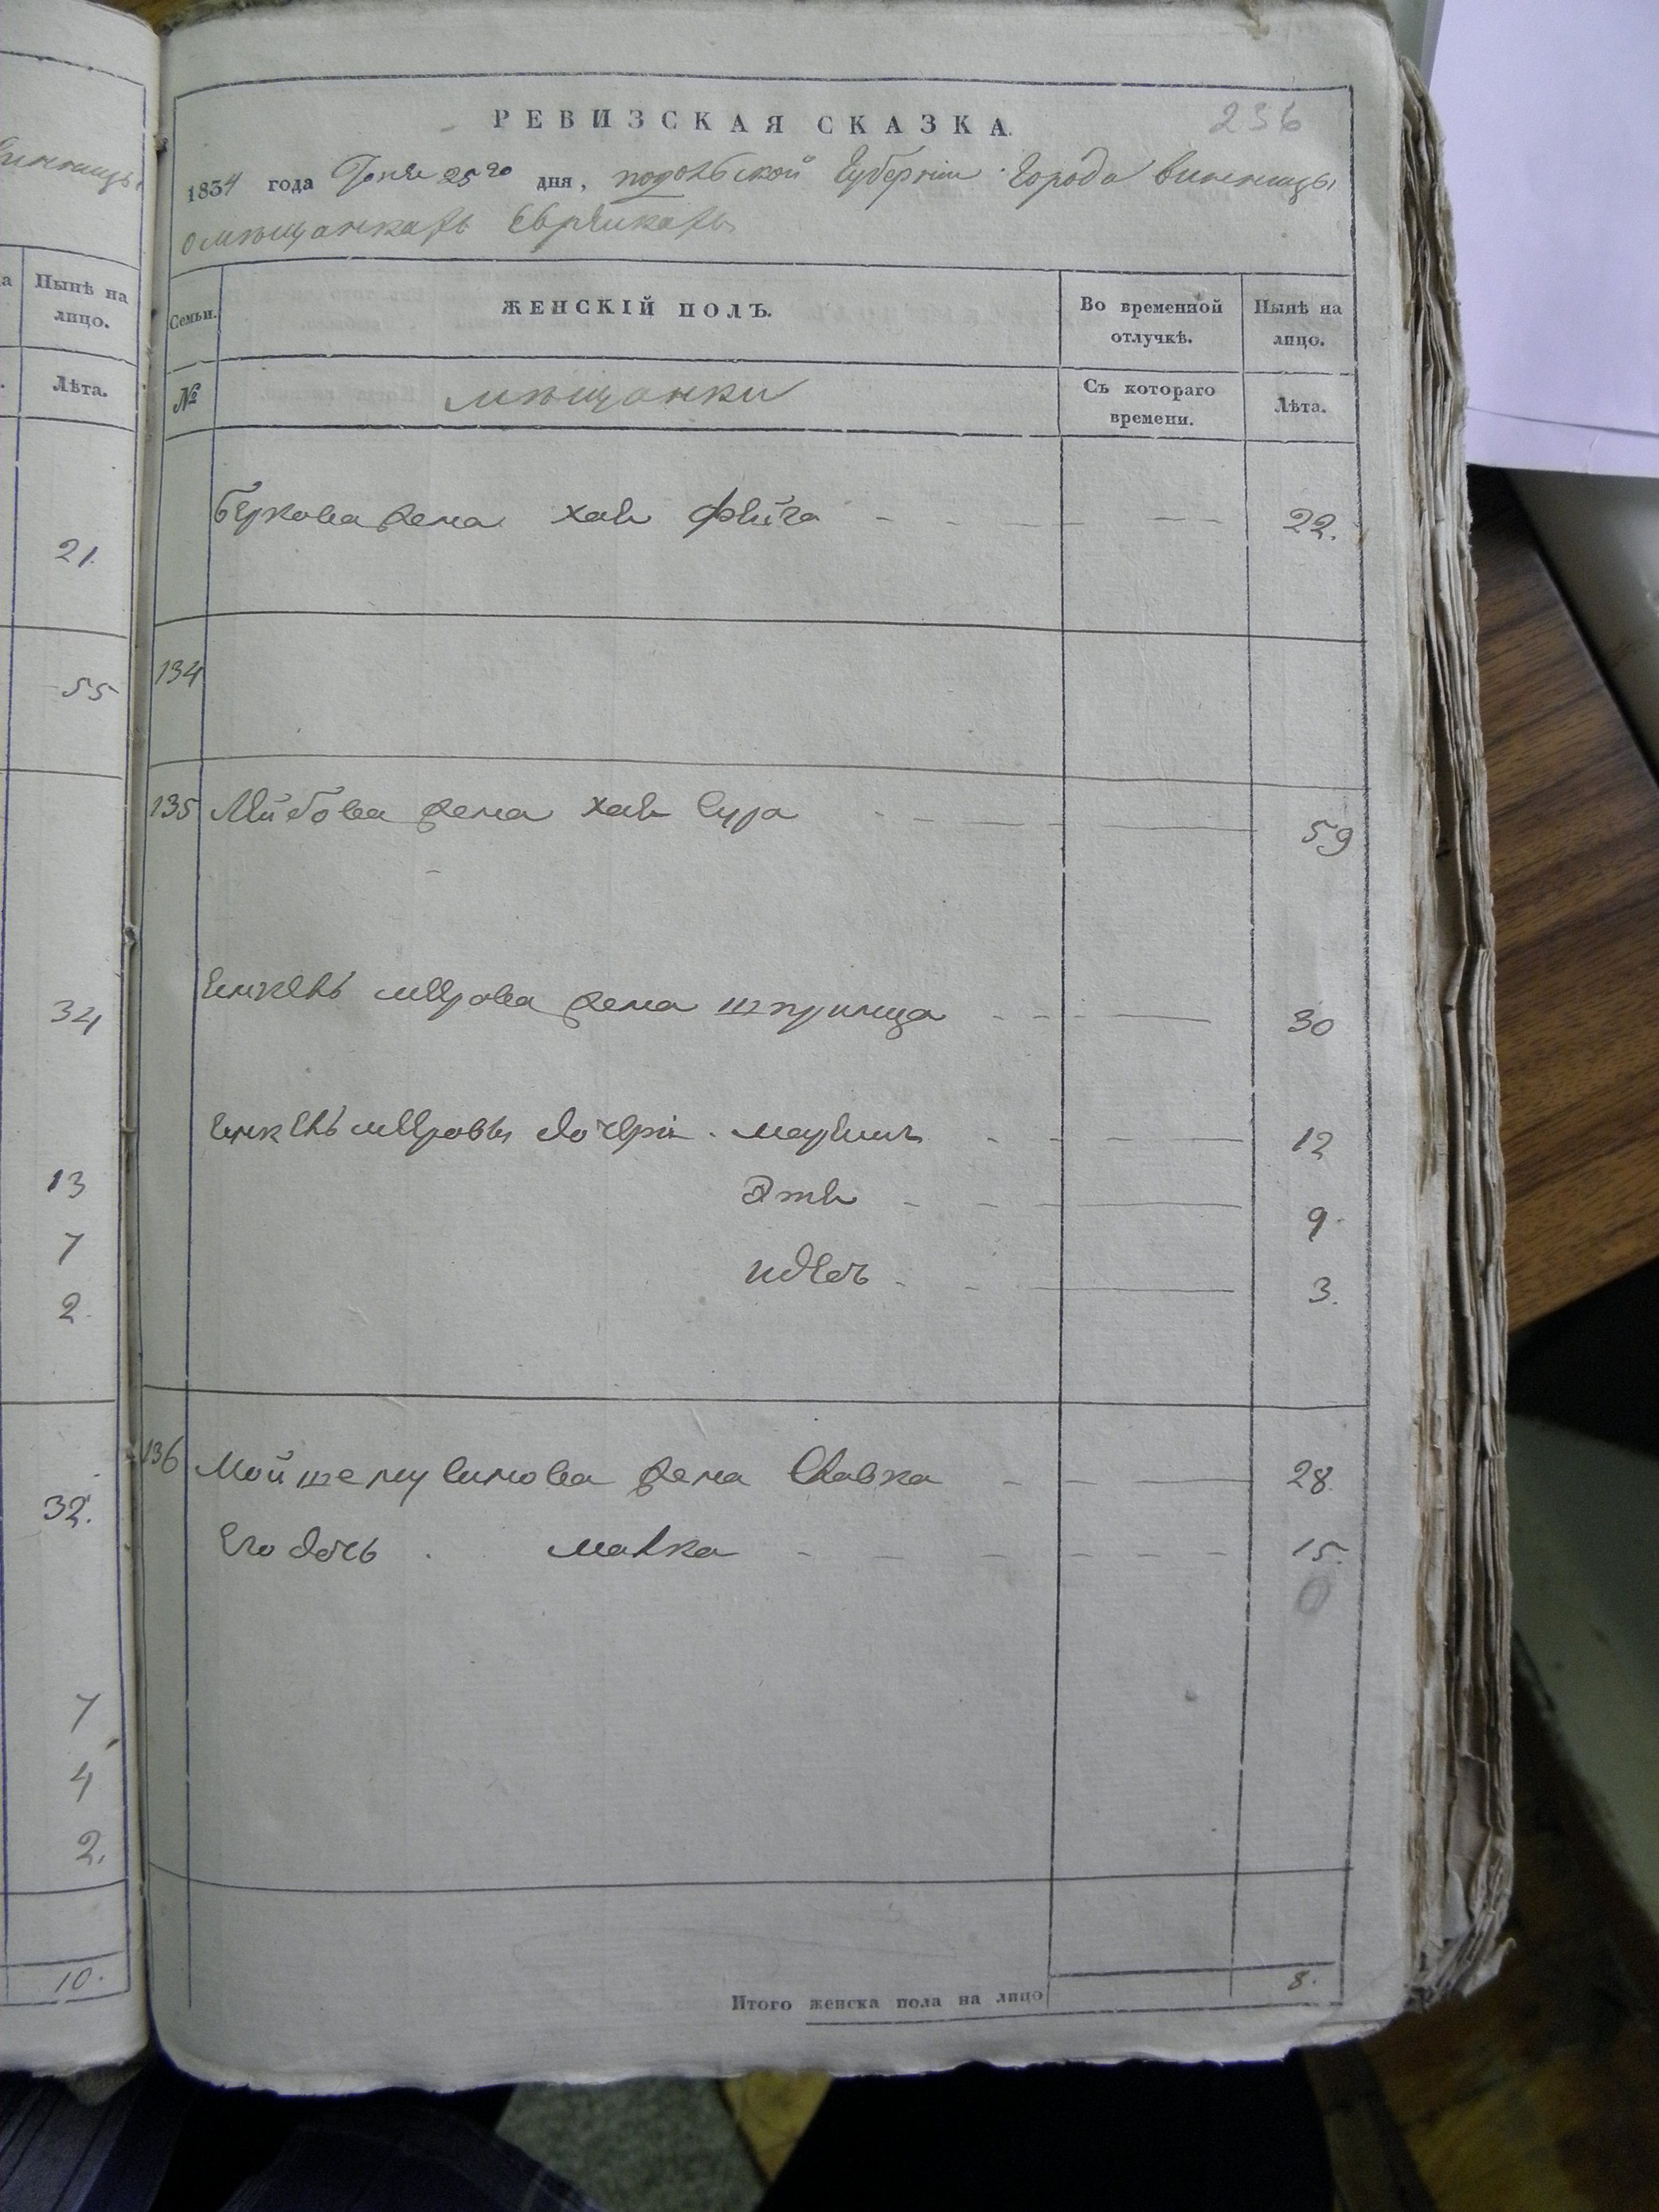 236
РЕВИЗСКАЯ СКАЗКА.
1834 года Іюня 25го дня, подольской Губерніи Города винницы
о мѣщанкахъ Еврейкахъ
Семьи.
ЖЕНСКІЙ ПОЛЪ.
Во временной отлучкѣ.
Нынѣ на лицо.
№
мѣщанки
Съ котораго времени.
Лѣта.
Беркова жена хая фейга 22.
134
135 Лейбова жена хая Сура 59
мерова жена шпринца 30
меровы дочери 12
Этя 9.
3.
136 жена Славка 28.
Его дочь малка 15.
0
Итого женска пола на лицо 8.
винницы
Нынѣ на лицо.
Лѣта.
21.
55
34
13
7
2.
32.
7
4
2.
10.